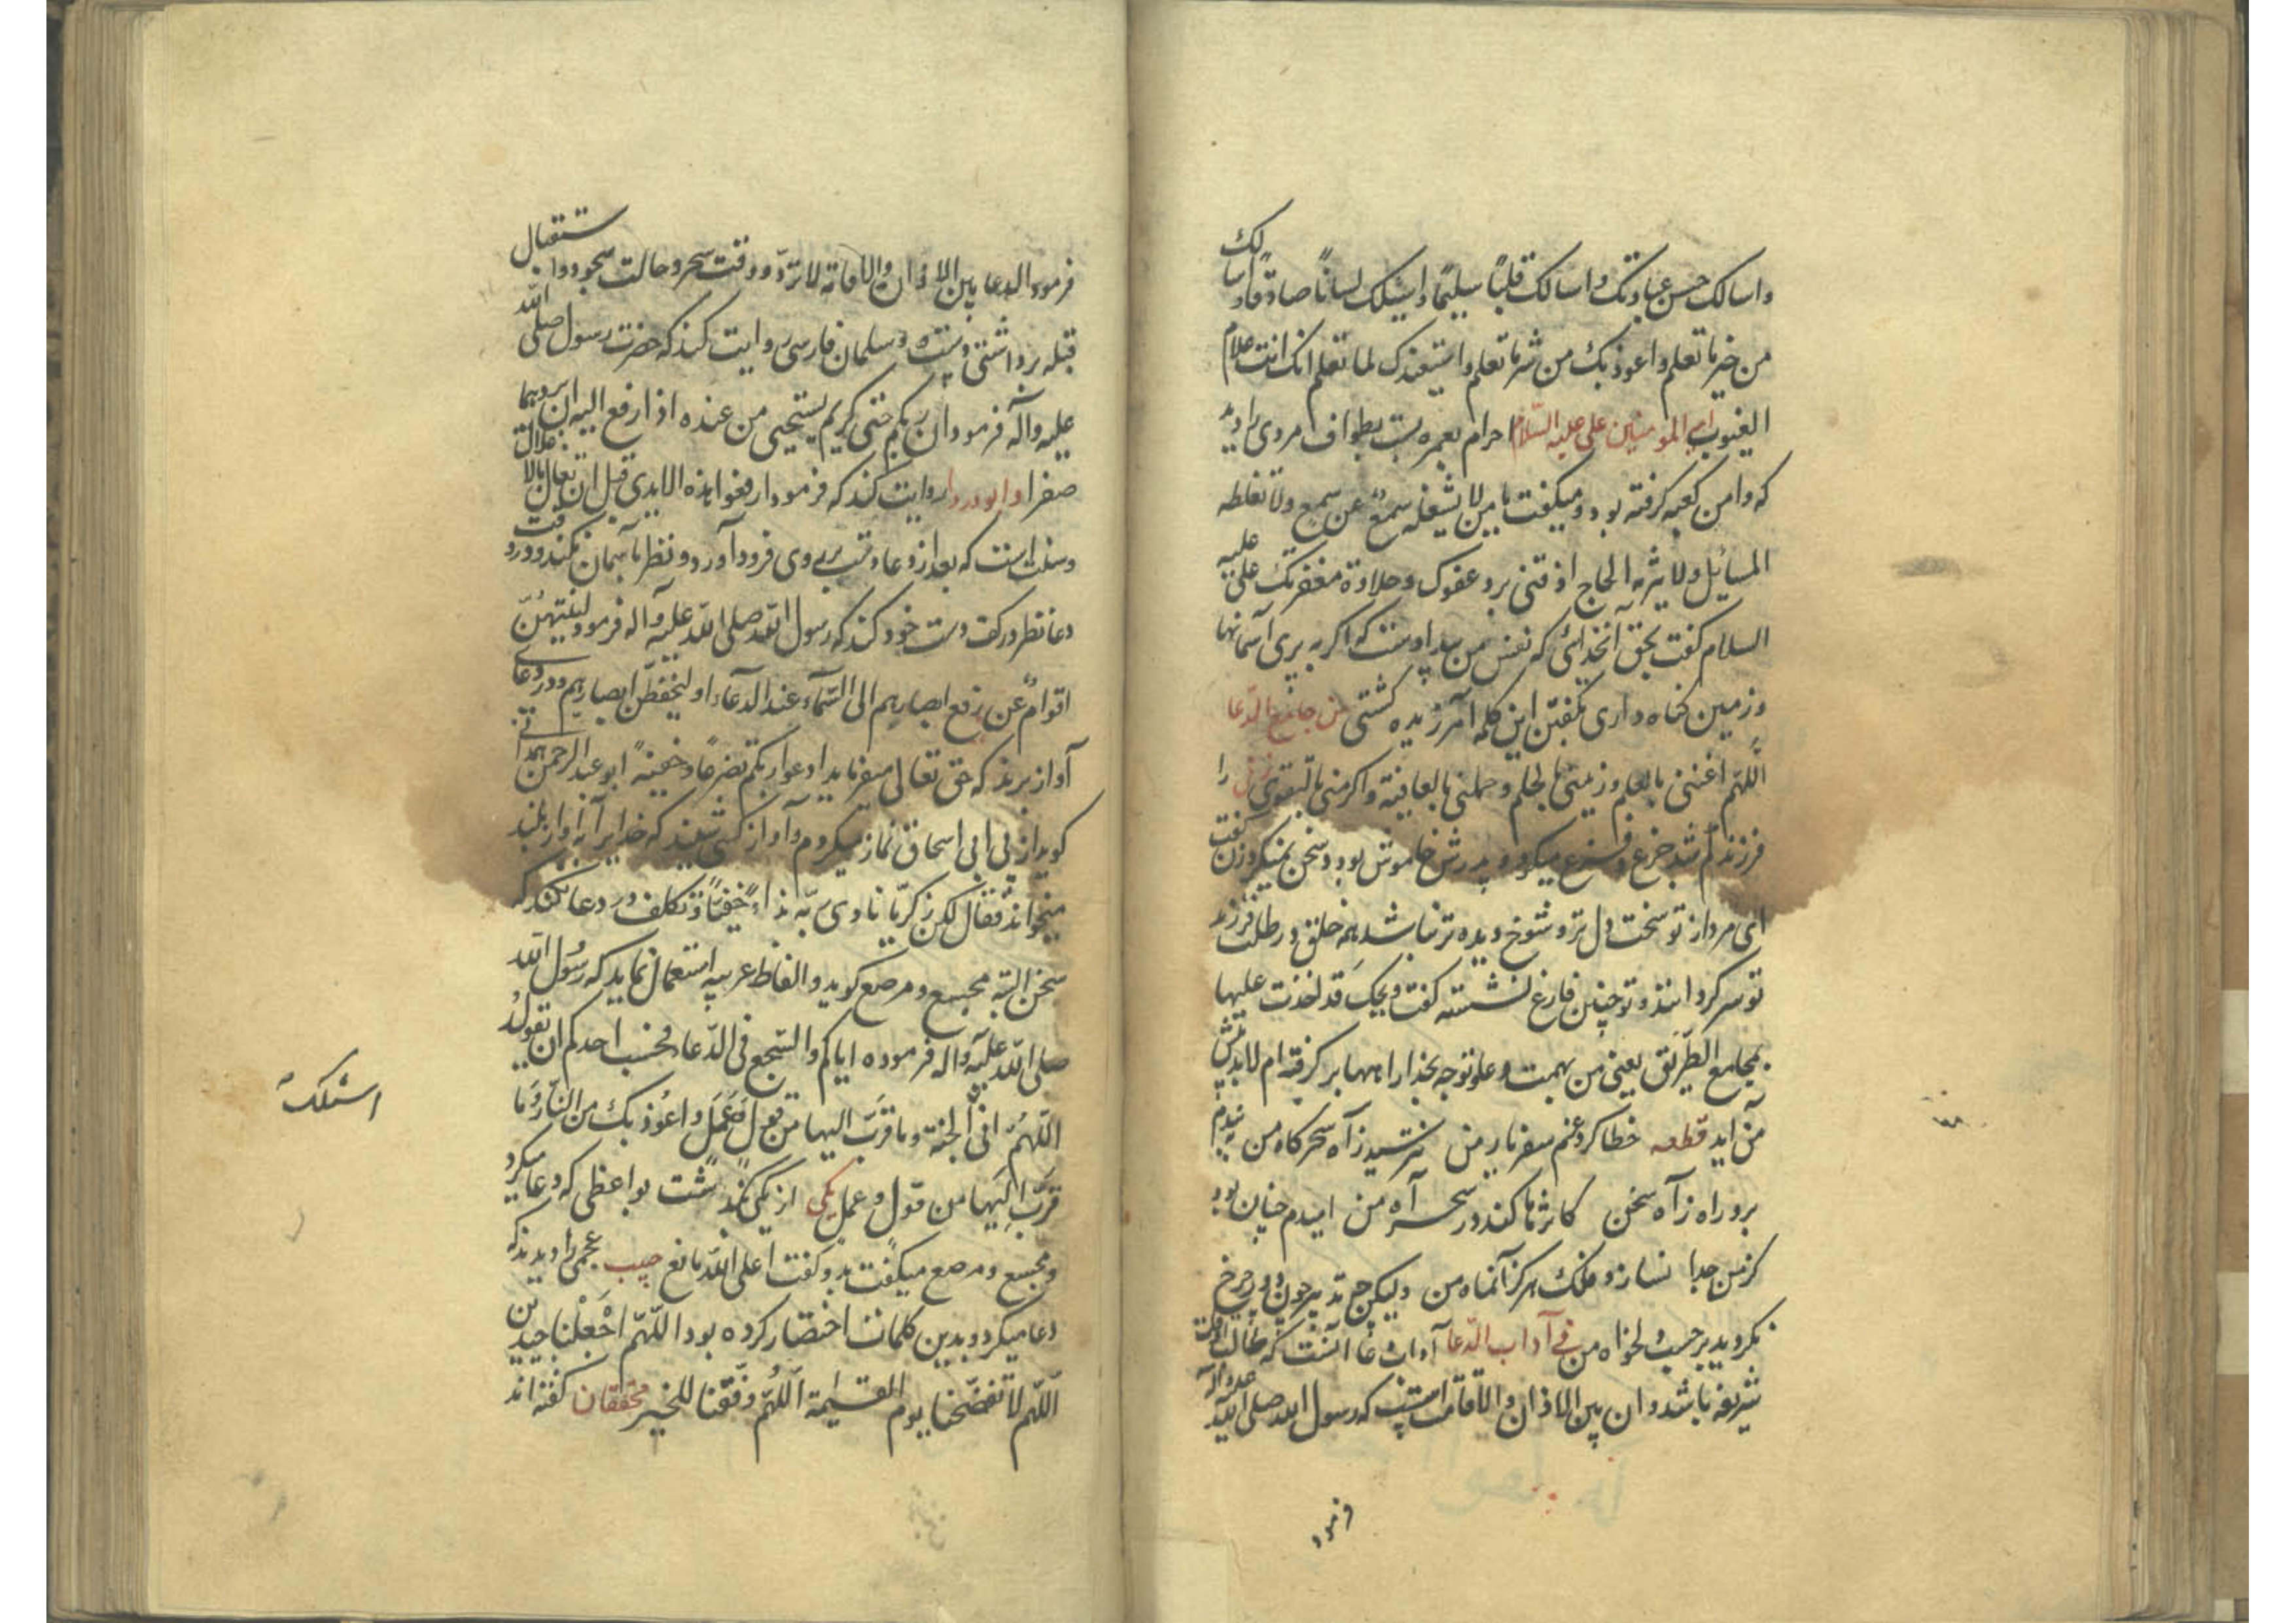 واسالک حسن عبادتک و اسالک قلبًا سلیمًا و اسئلک لسانًا صادقًا و اسالک
من خیر ما تعلم و اعوذ بک من شر ما تعلم و استغفرک لما تعلم انک انت علام
الغیوب امیر المومنین علی علیه السّلام احرام بعمره بست بطواف مردی را دید
که دامن کعبه کرفته بود و میکفت یا من لا یشغله سمعٌ عن سمع ولا تغلطه
المسائیل ولا یبرمه الحاح اذقنی برد عفوک و حلاوة مغفرتک علی علیه
السلام کفت بحق آنخدائی که نفس من بید اوست که اکر به پری آسمانها
و زمین کناه داری بکفتن این کلمه آمرزیده کشتی من جامع الدّعا
اللّهم اغننی بالعلم و زینی بالحلم و جملنی بالعافیة و اکرمنی بالتقوی زنی را
فرزند کم شد جزع و فزع میکرد و پدرش خاموش بود و سخن نمیکرد زن کفت
ای مرد از تو سخت دل تر و شوخ دیده تر نباشد همه خلق در طلب فرزند
تو سر کردانند و تو چنین فارغ نشسته کفت ویحک قد اخذت علیها
بمجامع الطّریق یعنی من بهمت و علو توجه بخدا راهها بر کرفته ام لابد پیش
من آید قطعه خطا کرد غنم سفر یار من نترسید ز آه سحرکاه من
برو راه ز آه سخن کاثرها کند در سحر آه من امیدم چنان بود
کز من جدا نسازد فلک هرکز آنماه من ولیکن چه تدبیر چون دور چرخ
نکردید بر حسب دلخواه من فی آداب الدّعا آداب دعا آنست که طالب اوقات
شریفه باشد و ان بین الاذان و الاقامت است که رسول الله صلی الله علیه و آله
فرمود
فرمود الدعا بین الاذان والاقامة لا تردّ و وقت سحر و حالت سجود و استقبال
قبله برداشتن دست و سلمان فارسی روایت کند که حضرت رسول صلی الله
علیه و آله فرمود ان ربکم حیی کریم یستحیی من عنده اذا رفع الیه ان یردهما
صفرا و ابو دردا روایت کند که فرمود ارفعوا هذه الایدی قبل ان تغل بالاغلال
و سنت است که بعد از دعا دست بر روی فرود آورد و نظر بآسمان نکند و در وقت
دعا نظر در کف دست خود کند که رسول الله صلی الله علیه و آله فرمود لینتهینّ
اقوامٌ عن رفع ابصارهم الی السّمآء عند الدعآء او لیخفطن ابصارهم و در دعای
آواز بر ندارد که حق تعالی میفرماید ادعوا ربکم تضرعًا و خفیةً ابو عبد الرحمن همدانی
کوید از پی ابی اسحاق نماز میکردم و آواز کسی شنید که خدایرا به آواز بلند
میخواند فقال لکن زکریّا نادی ربّه نداءً خفیّاً و تکلف در دعا نکند که
سخن البته مجسع و مرصع کوید و الفاظ عربیه استعمال نماید که رسُول الله
صلی الله علیه و اله فرموده ایاکم و السّجع فی الدّعا محسب احدکم ان تقول
اللّهمُ انی الجنة و ما قرّب الیها من قول و عمل و اعوذ بک من النّار و ما
قرّب الیها من قول و عمل یکی از یکی بگذشت بواعظی که دعا میکرد
و مجسع و مرصع میکفت بدو کفت اعلی الله تالغ حبیب عجمی را دیدند که
دعا میکرد و بدین کلمات اختصار کرده بود اللّهم اجعلنا جیدین
اللّهم لا تفضحنا یوم القیمة اللّهم وفّقنا للخیر محققان کفته اند
اسئلک